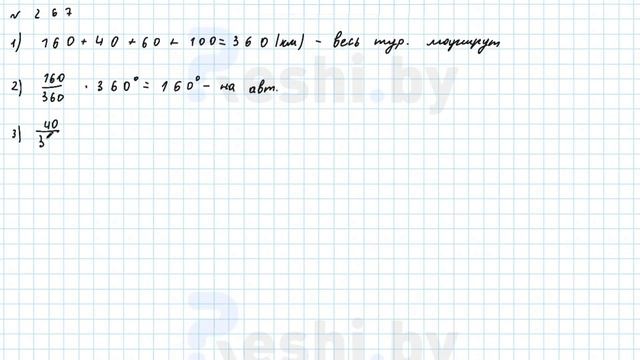 № 267
1) 160 + 40 + 60 + 100 = 360 (км) - весь тур. маршрут
2) 160/360 · 360° = 160° - на авт.
3) 40/3
Reshi.by
eshi.by